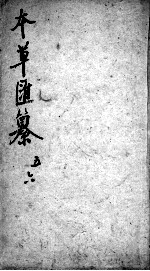 本草匯纂
五六